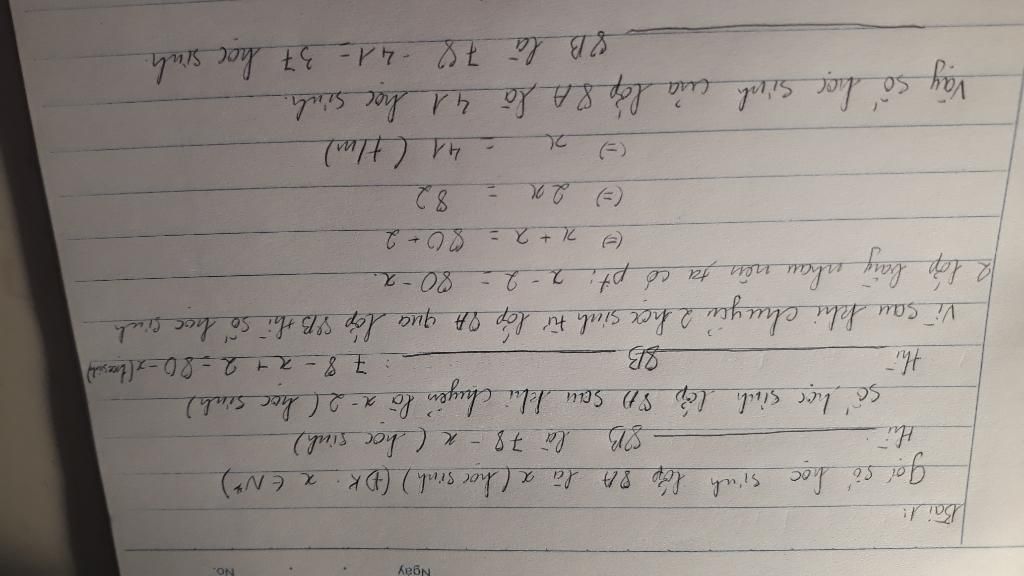 No.
Ngày
Bài 1:
Gọi số học sinh lớp 8A là x (học sinh) (ĐK: x ∈ N*)
thì ——— 8B là 78 - x (học sinh)
số học sinh lớp 8A sau khi chuyển là x-2 (học sinh)
thì ——— 8B ——— : 78 - x + 2 = 80 - x (học sinh)
Vì sau khi chuyển 2 học sinh từ lớp 8A qua lớp 8B thì số học sinh
2 lớp bằng nhau nên ta có pt: x - 2 = 80 - x
(=) x + x = 80 + 2
(=) 2x = 82
(=) x = 41 (t/m)
Vậy số học sinh của lớp 8A là 41 học sinh.
8B là 78 - 41 = 37 học sinh.